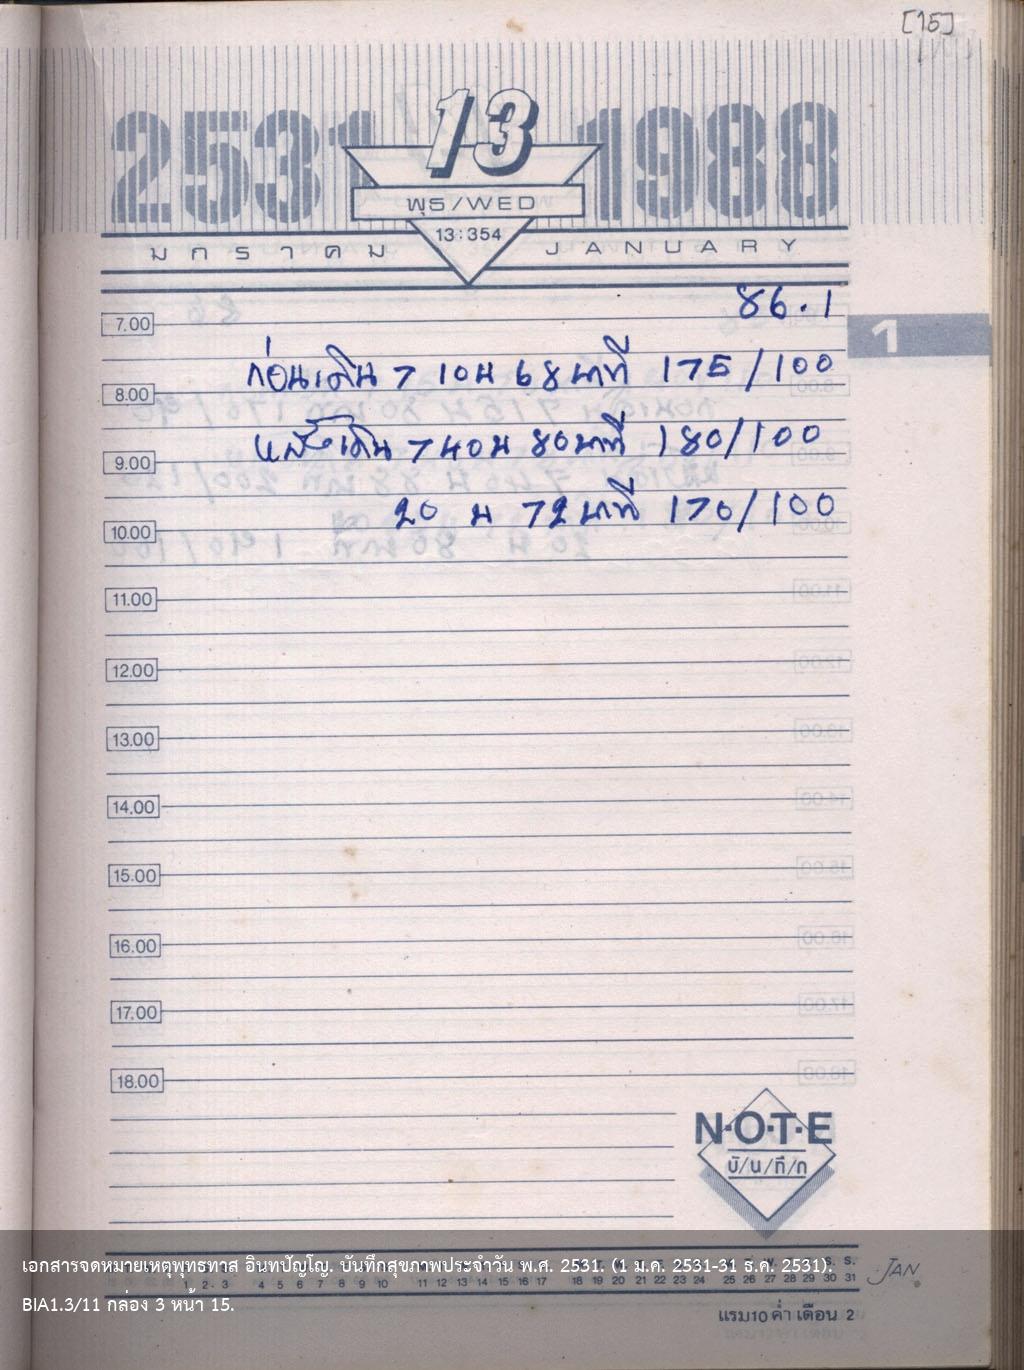 [15]
2531 13 1988
พุธ/WED
13:354
มกราคม JANUARY
86.1
7.00
1
ก่อนเดิน 7 10น 68 นาที 175/100
8.00
หลังเดิน 7 40น 80 นาที 180/100
9.00
20 น 72 นาที 170/100
10.00
11.00
12.00
13.00
14.00
15.00
16.00
17.00
18.00
N·O·T·E
บั/น/ทึ/ก
เอกสารจดหมายเหตุพุทธทาส อินทปัญโญ. บันทึกสุขภาพประจำวัน พ.ศ. 2531. (1 ม.ค. 2531-31 ธ.ค. 2531).
1 2 3 4 5 6 7 8 9 10 11 12 13 14 15 16 17 18 19 20 21 22 23 24 25 26 27 28 29 30 31 JAN.
BIA1.3/11 กล่อง 3 หน้า 15.
แรม10 ค่ำ เดือน 2